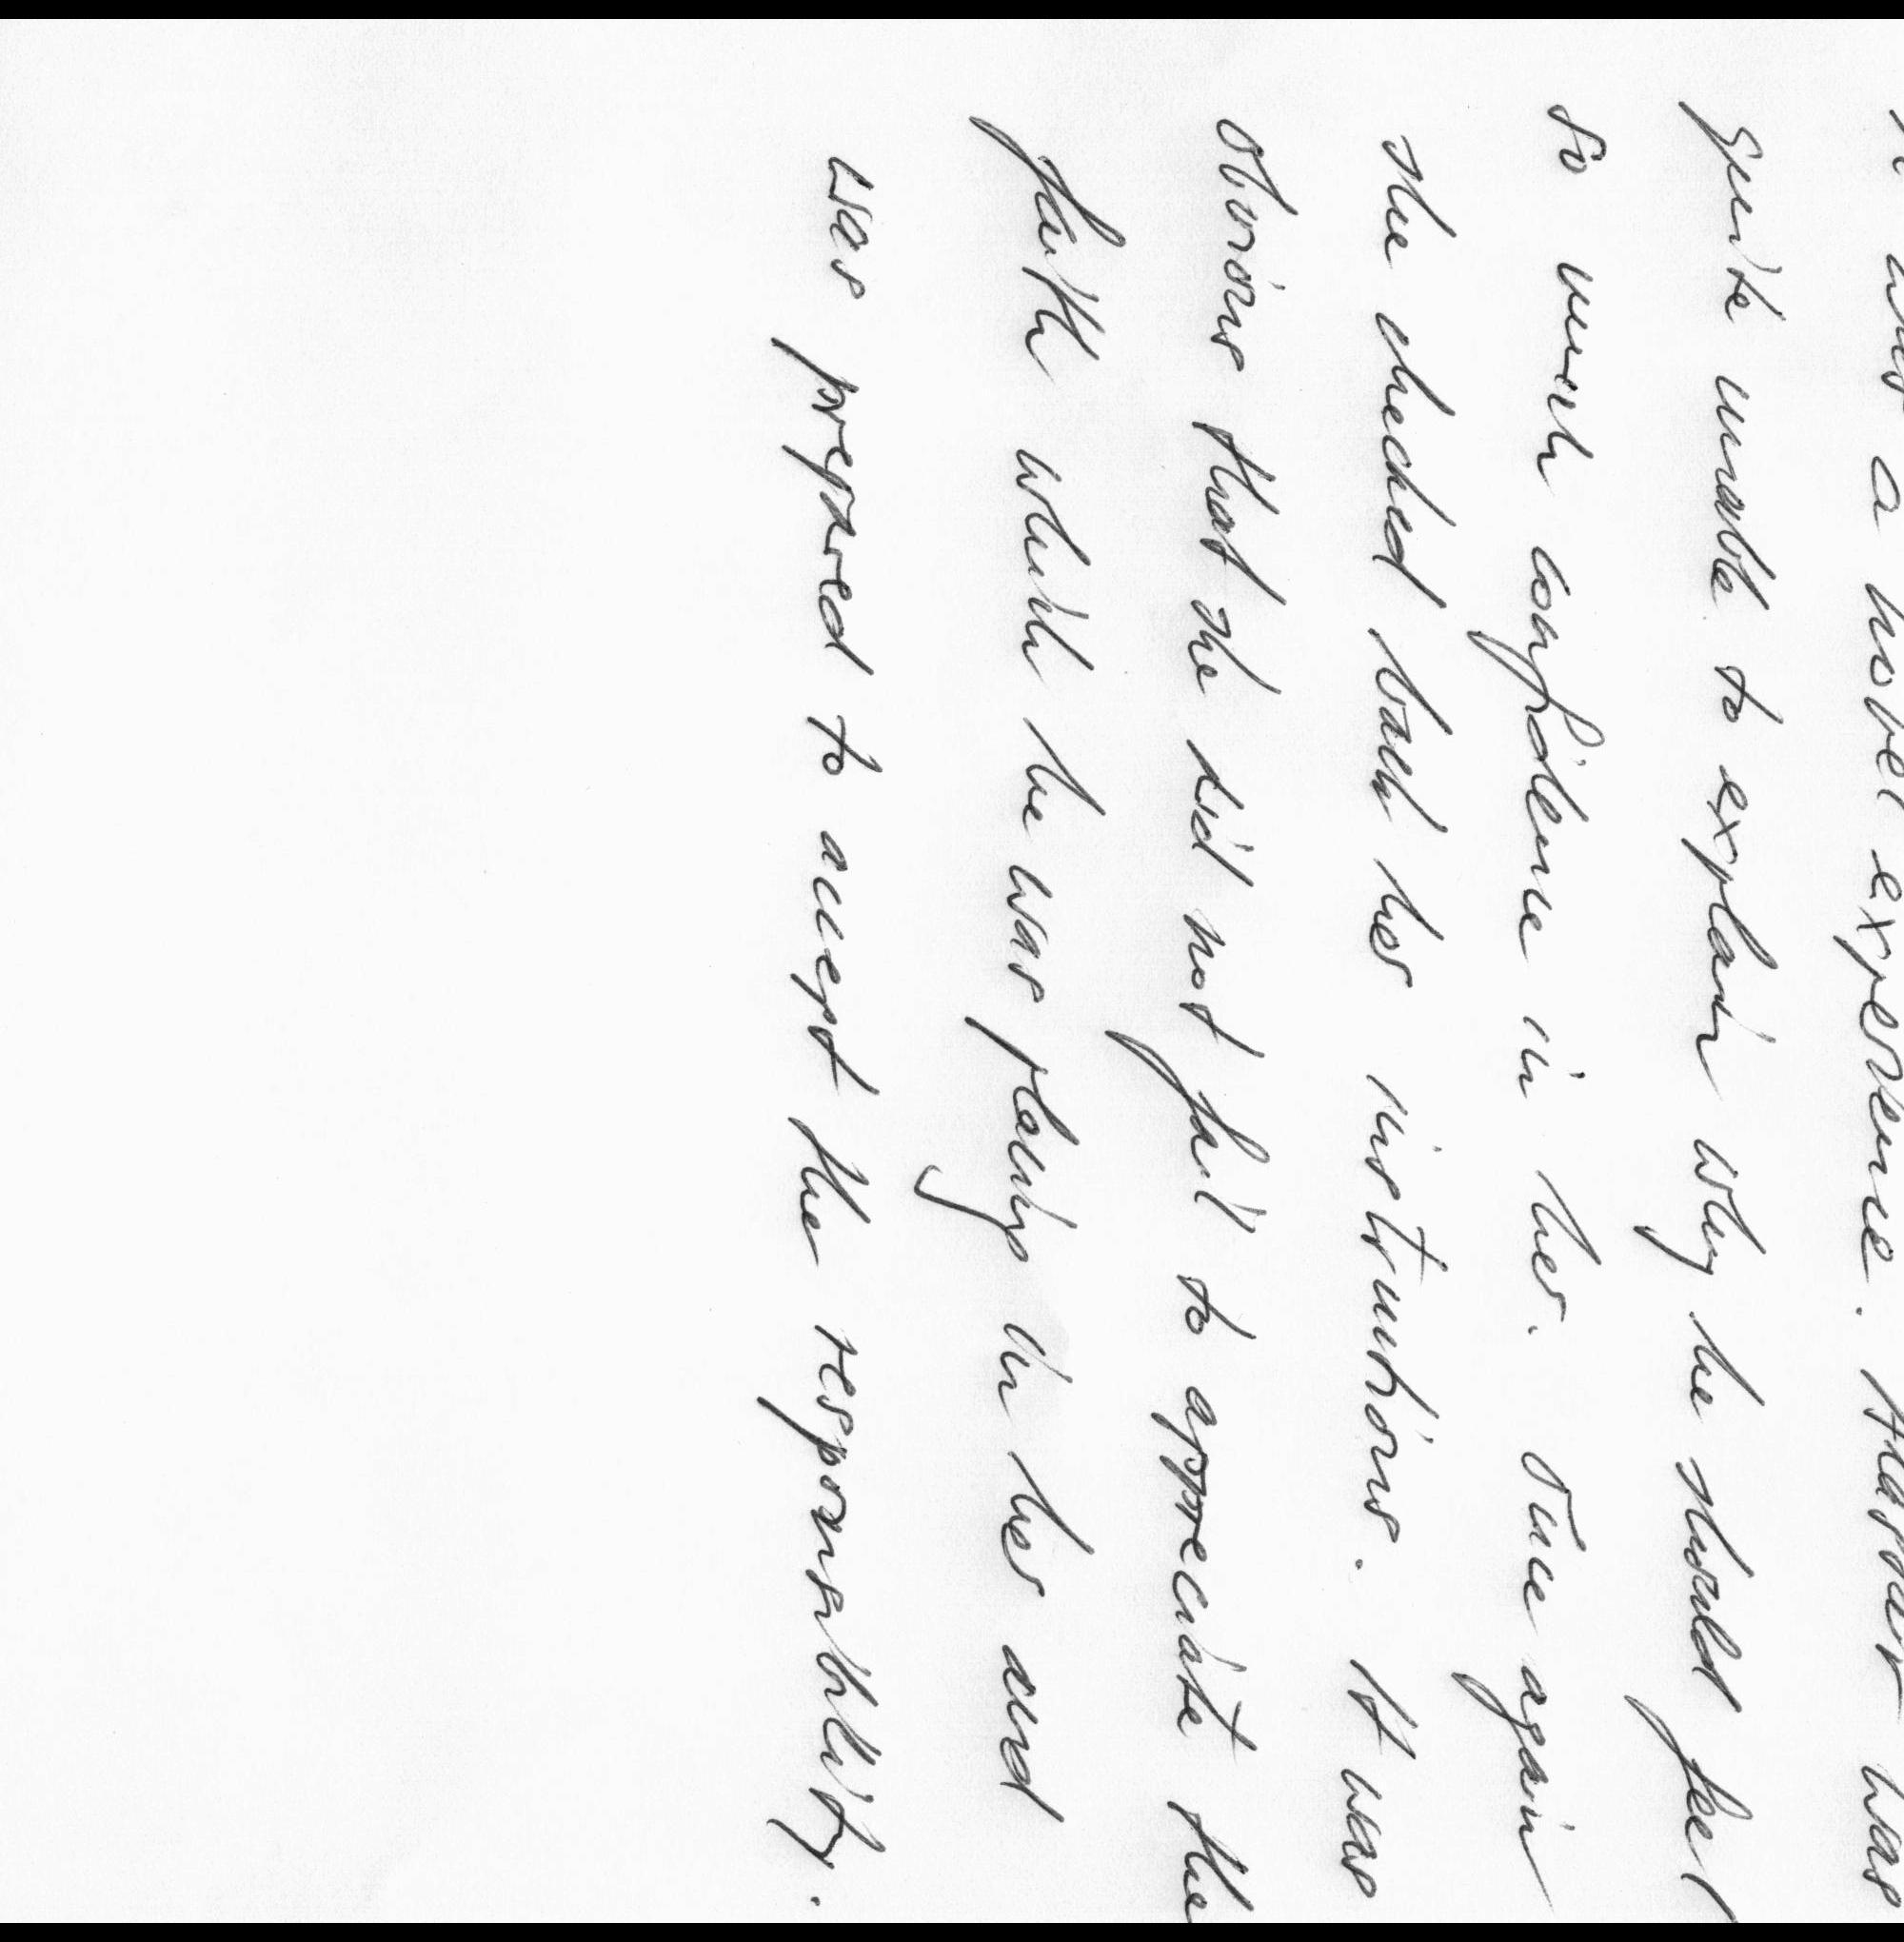 was a novel experience. Hassan was
quite unable to explain why he should feel
so much confidence in her. Once again
she checked back her instructions. It was
obvious that she did not fail to appreciate the
faith which he was placing in her and
was prepared to accept the responsibility.